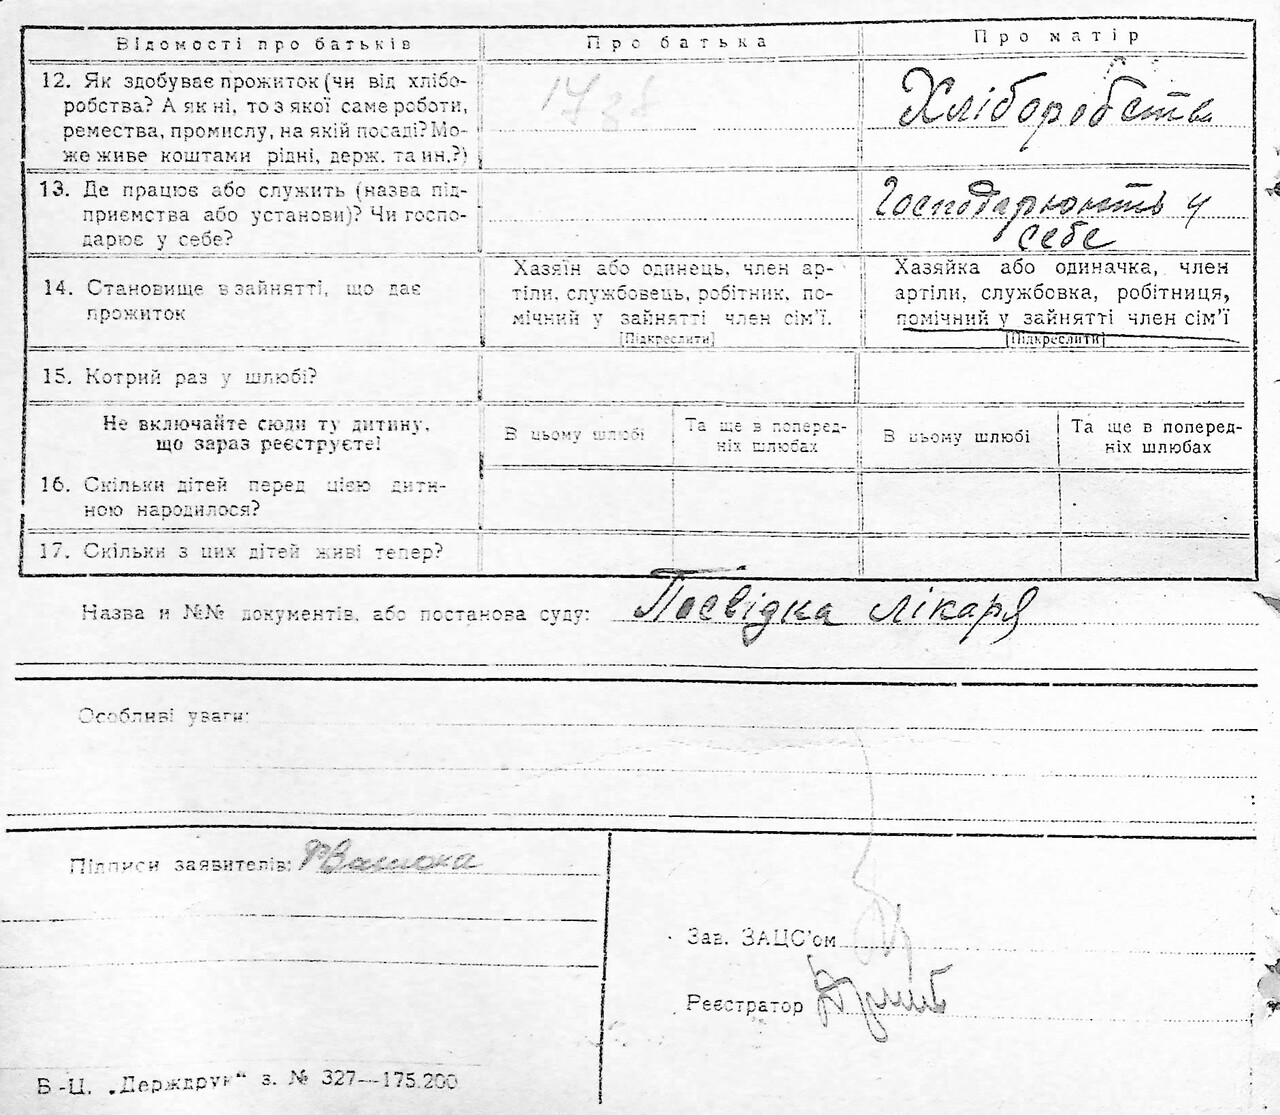 Відомості про батьків
Про батька
Про матір
12. Як здобуває прожиток (чи від хлібо-
робства? А як ні, то з якої саме роботи,
ремества, промислу, на якій посаді? Мо-
же живе коштами рідні, держ. та ин.?)
Хліборобство
13. Де працює або служить (назва під-
приємства або установи)? Чи госпо-
дарює у себе?
Господарюють у
себе
14. Становище в зайнятті, що дає
прожиток
Хазяїн або одинець, член ар-
тіли, службовець, робітник, по-
мічний у зайнятті член сім'ї.
[Підкреслити]
Хазяйка або одиначка, член
артіли, службовка, робітниця,
помічний у зайнятті член сім'ї
[Підкреслити]
15. Котрий раз у шлюбі?
Не включайте сюди ту дитину,
що зараз реєструєте!
В цьому шлюбі
Та ще в поперед-
ніх шлюбах
В цьому шлюбі
Та ще в поперед-
ніх шлюбах
16. Скільки дітей перед цією дити-
ною народилося?
17. Скільки з цих дітей живі тепер?
Назва й №№ документів, або постанова суду: Посвідка лікаря
Особливі уваги:
Підписи заявителів:
Зав. ЗАЦС'ом
Реєстратор
Б-Ц. „Держдрук“ з. № 327—175.200